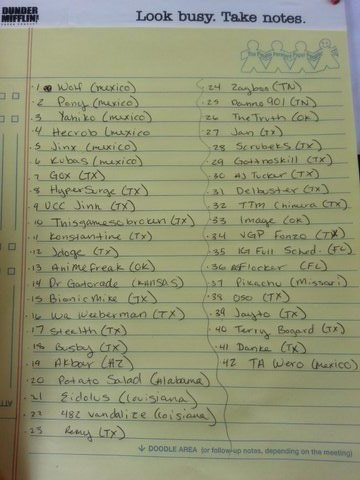 DUNDER
MIFFLIN
Look busy. Take notes.
1 Wolf (Mexico)
2 Pony (Mexico)
3 Yahiko (Mexico)
4 Hecrob (Mexico
5 Jinx (Mexico)
6 Kubas (Mexico)
7 Gox (TX)
8 HyperSurge (TX)
9 UCC Jinn (TX)
10 Thisgamesobroken (TX)
11 Konstantine (TX)
12 Jdoge (TX)
13 AniMefreak (OK)
14 Dr Gatorade (KANSAS
15 Bionic Mike (TX)
16 Weeberman (TX)
17 Stealth (TX)
18 Busby (TX)
19 Akbar (AZ)
20 Potato Salad (Alabama)
21 Eidolus (Louisiana)
22 482 vandalize (Loisiana)
23 Remy (TX)
24 (TN)
25 Danno 901 (TN)
26 The Truth (OK)
27 Jan (TX)
28 Scrubeks (TX)
29 Gottnoskill (TX)
30 HJ Tucker (TX)
31 Delbuster (TX)
32 TTM Chimura (TX)
33 Image (OK)
34 VGP Fonzo (TX)
35 Full Sched. (FL)
36 Flocker (FL)
37 Pikachu (Missari)
38 Oso (TX)
39 Jayto (TX)
40 Terry Bogard (TX)
41 Danke (TX)
42 TA Wero (Mexico)
↓ DOODLE AREA (or follow-up notes, depending on the meeting)